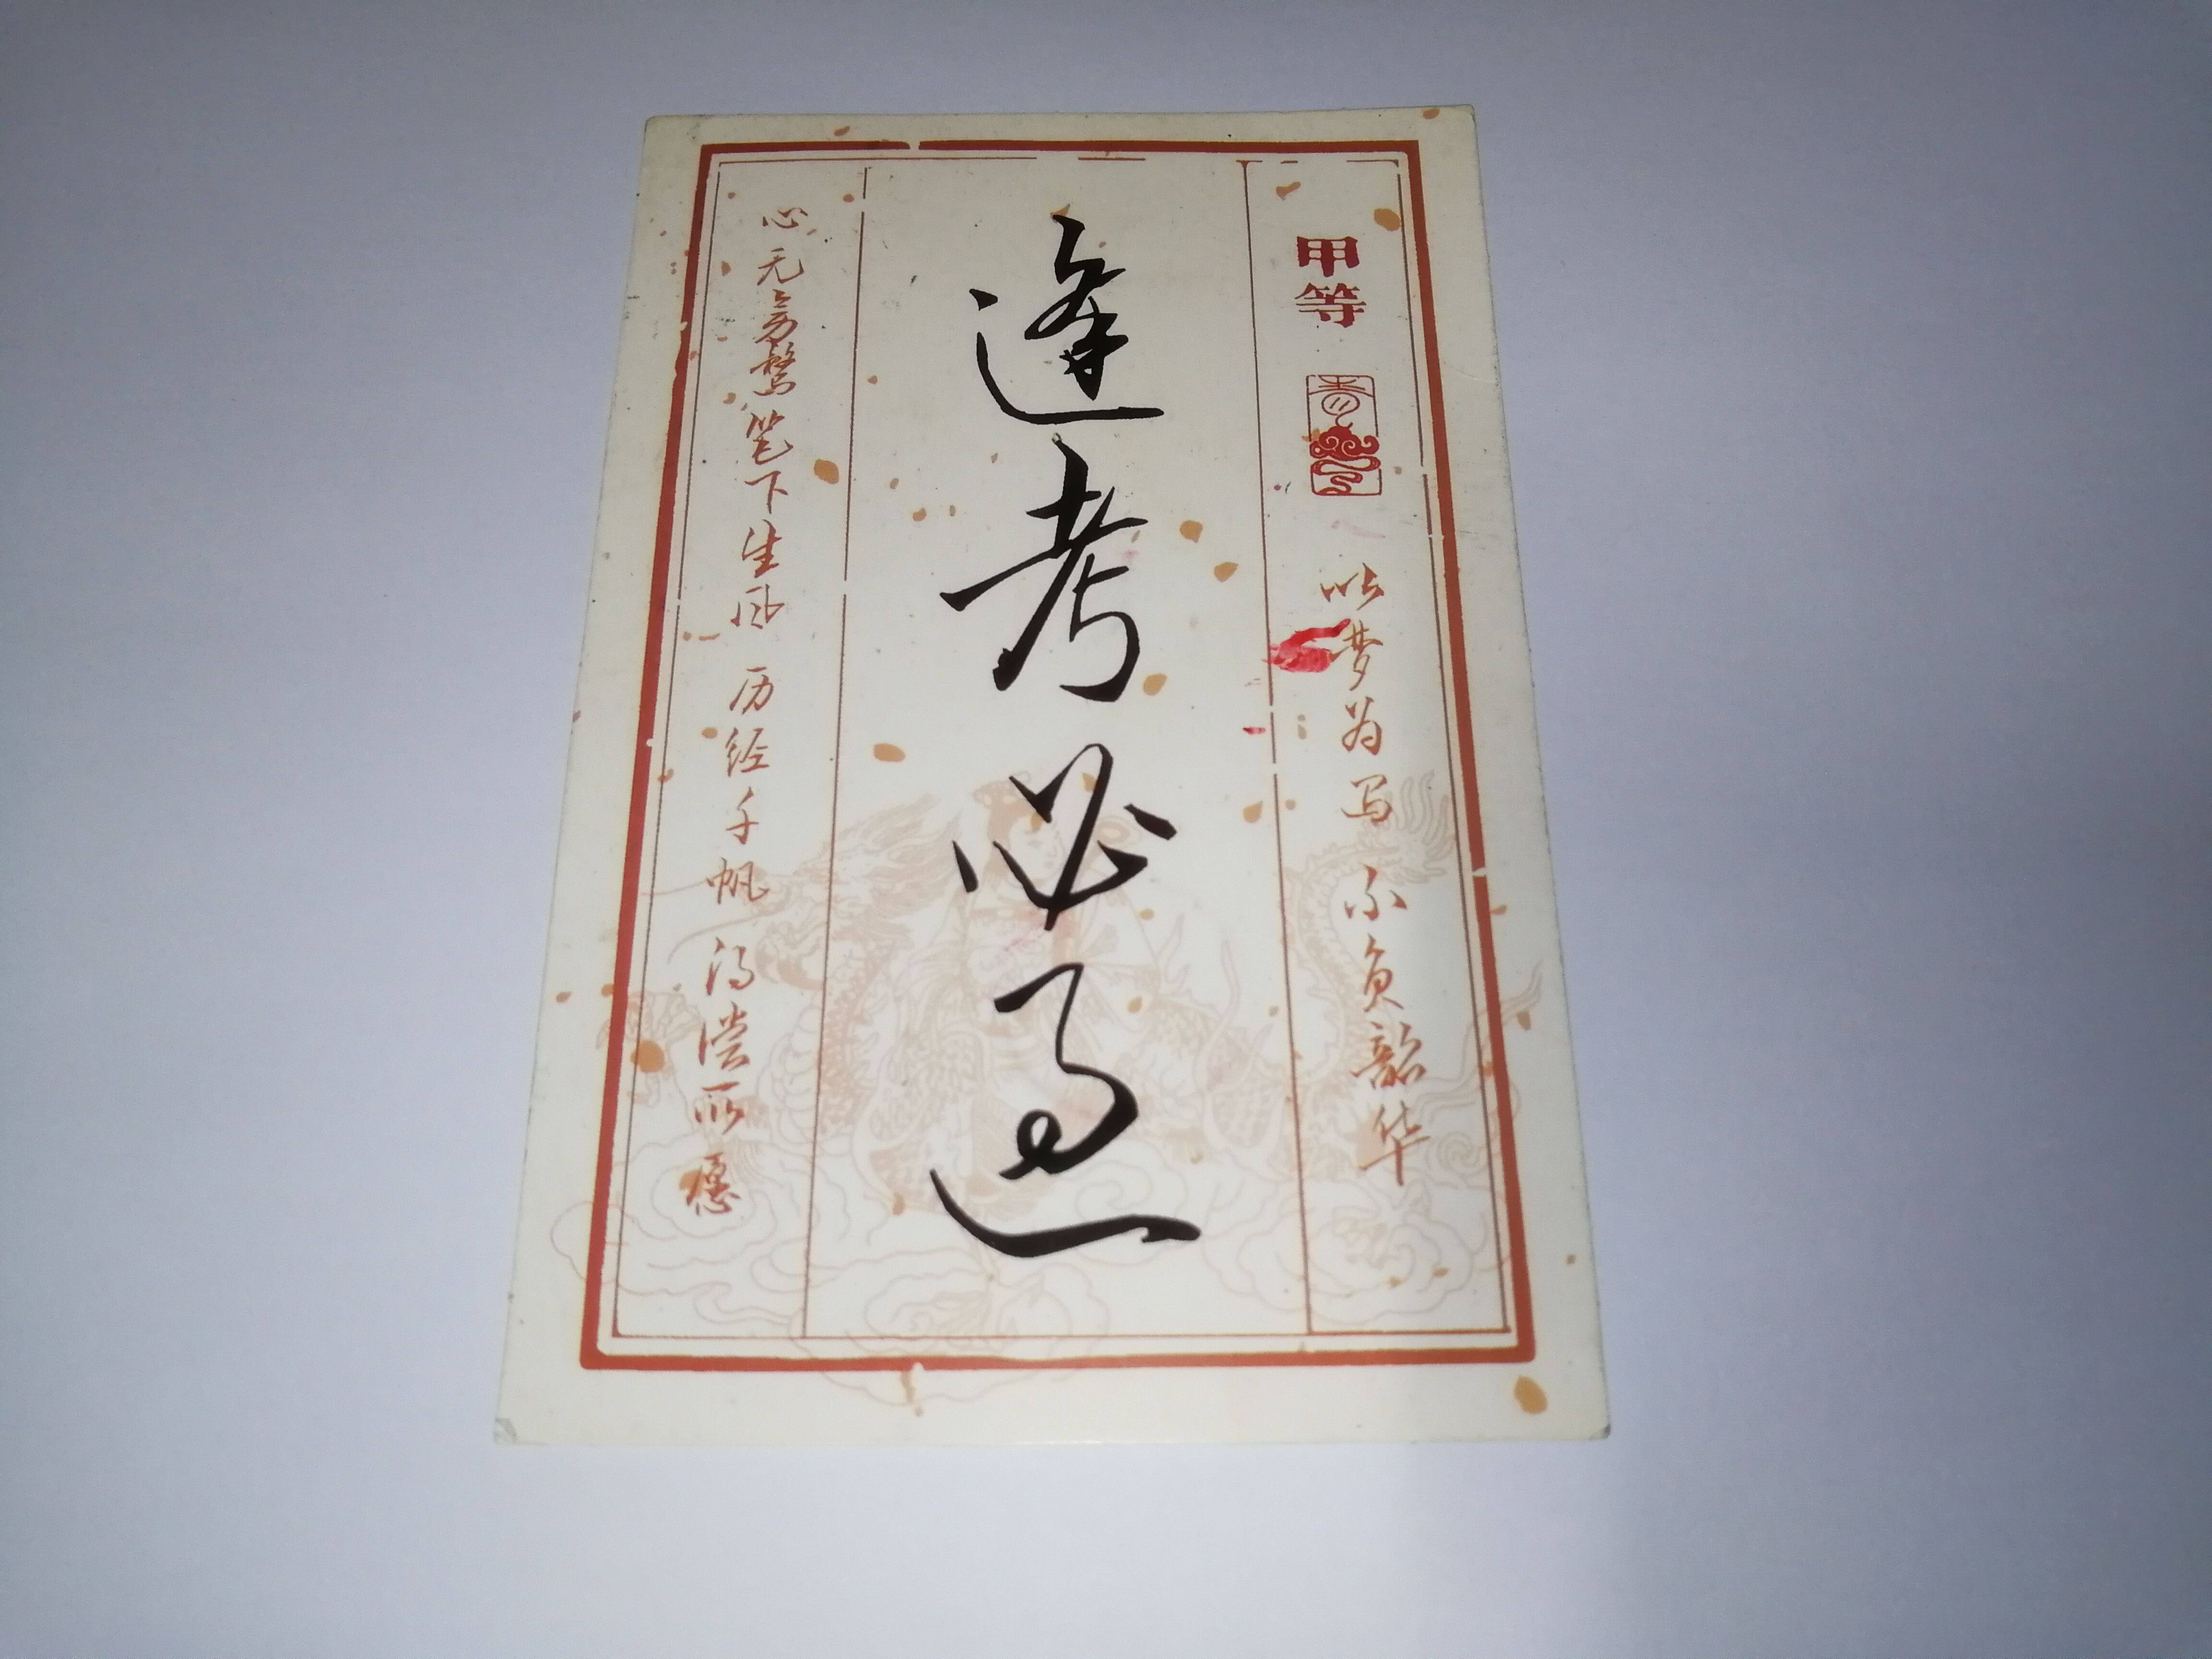 甲等
青云
以梦为马 不负韶华
逢考必过
心无旁骛笔下生风 历经千帆 得偿所愿